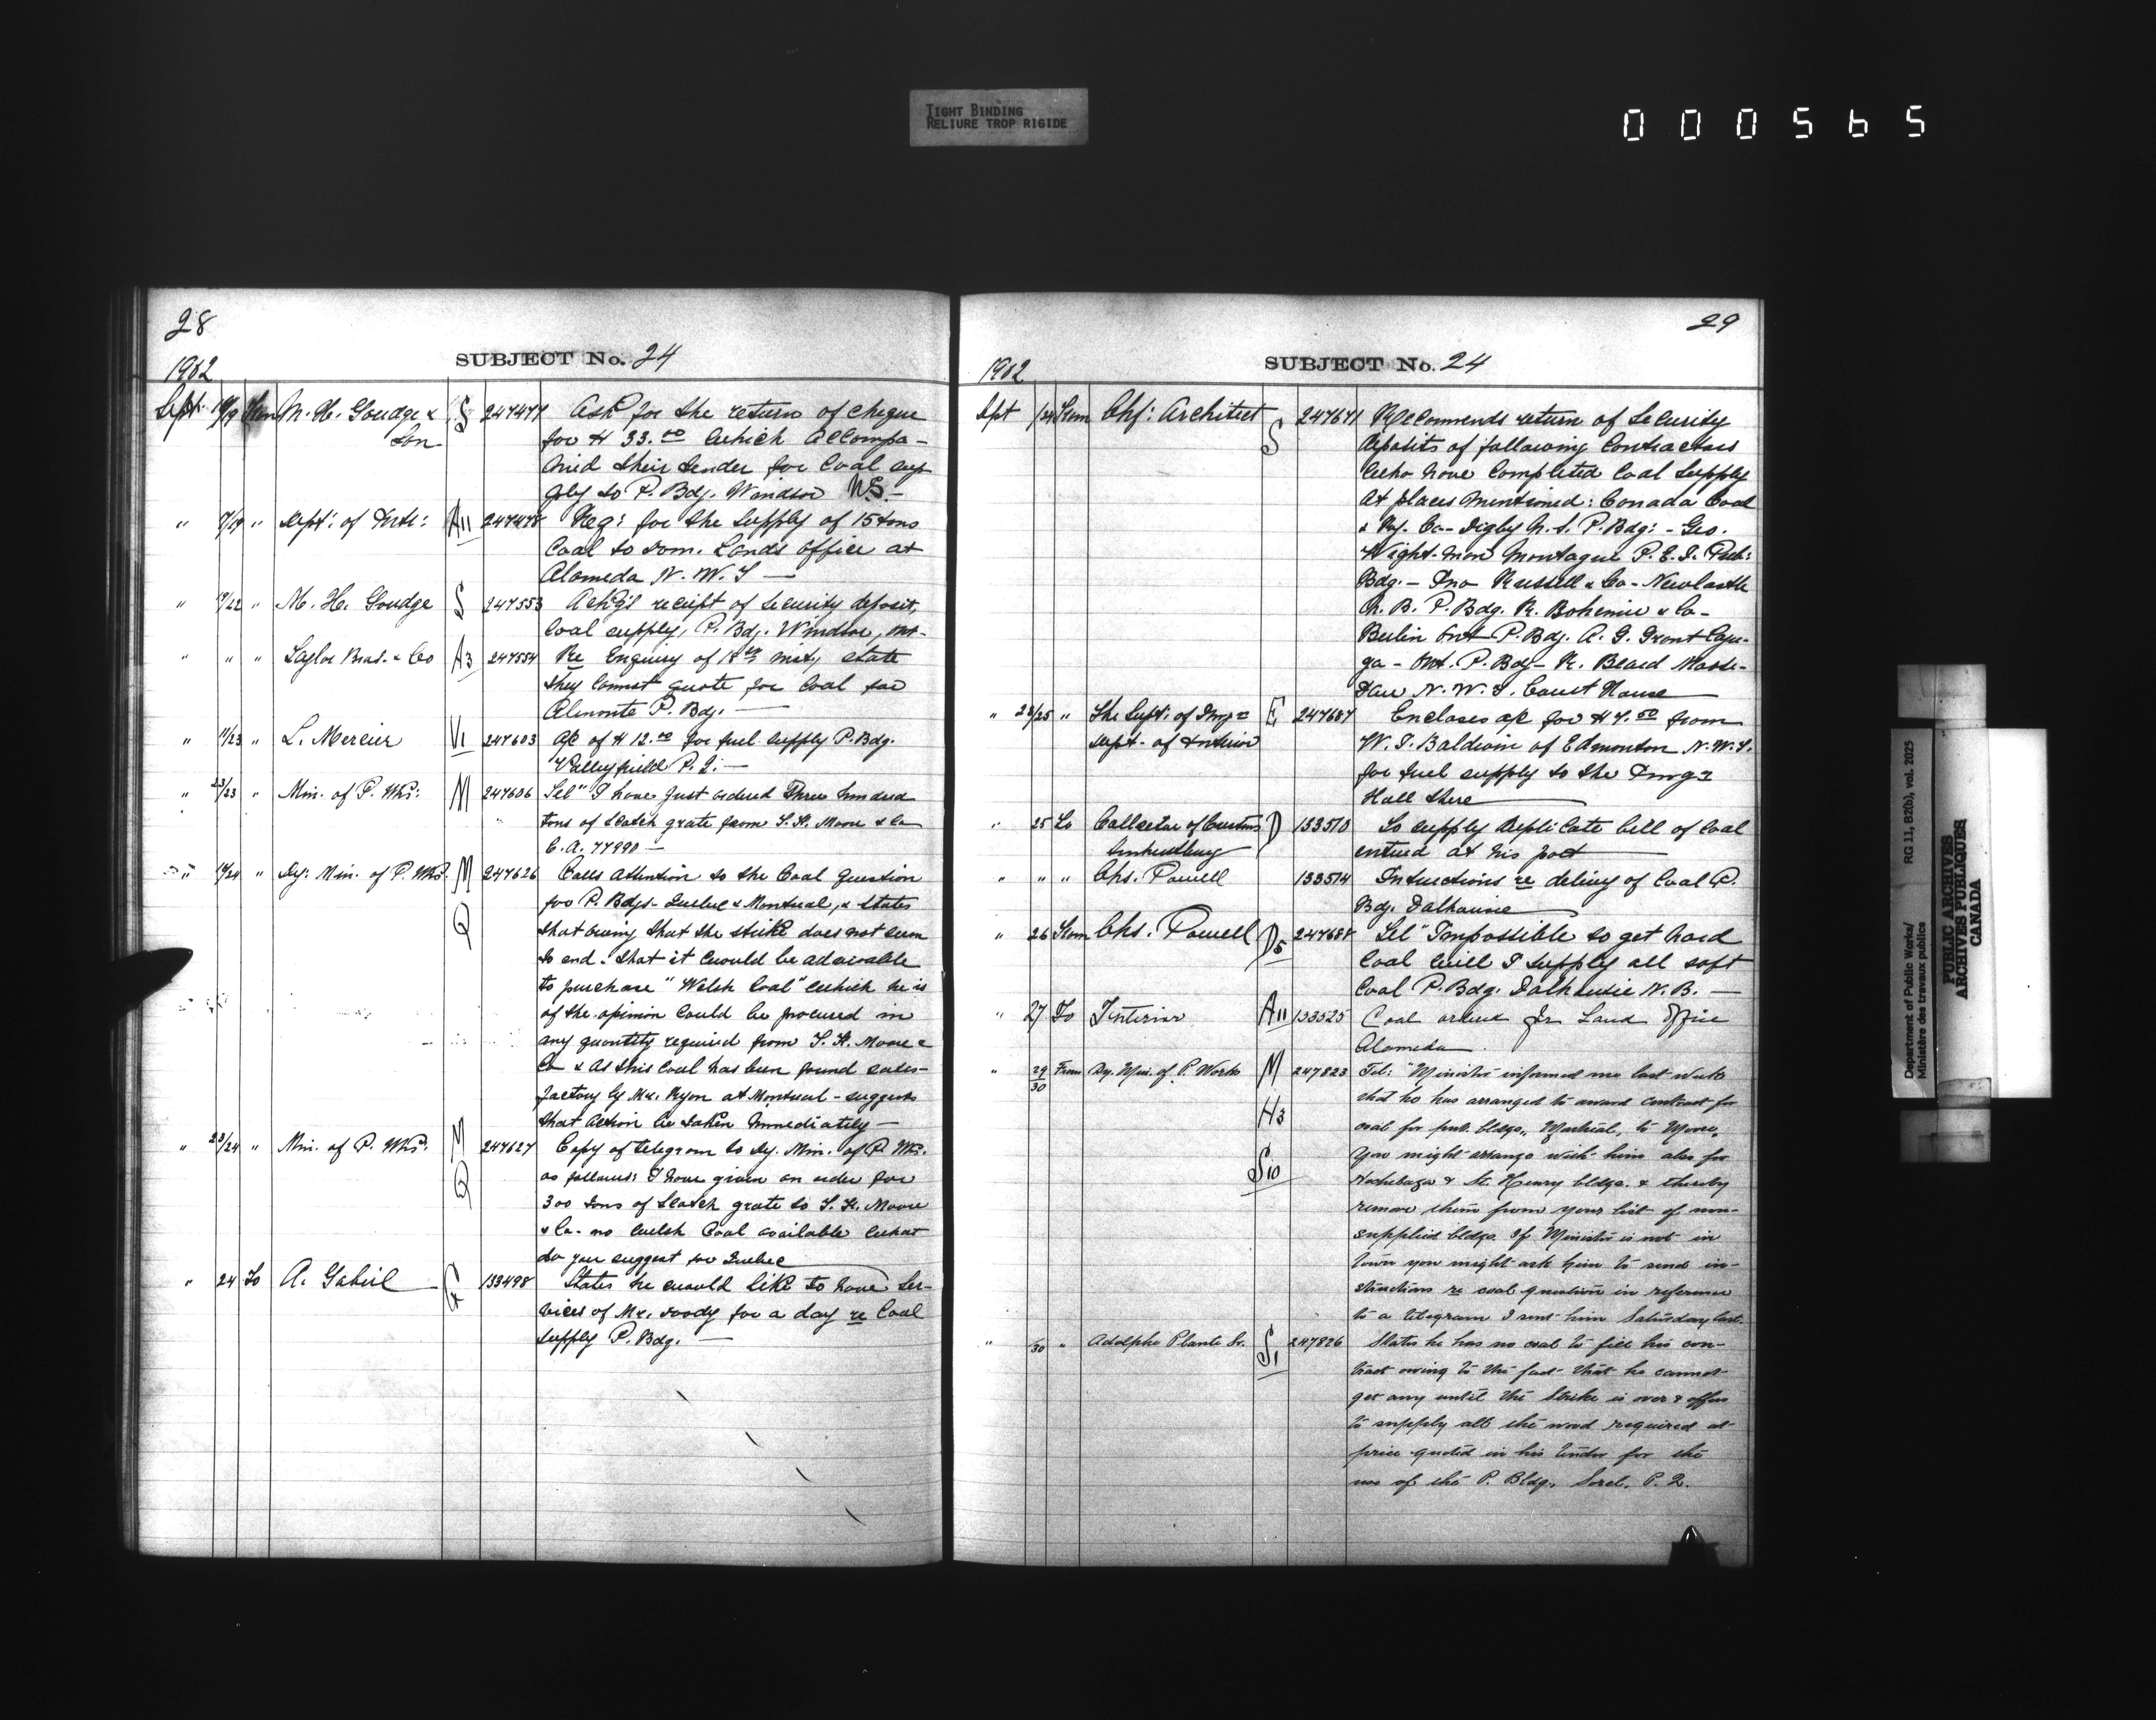 TIGHT BINDING
RELIURE TROP RIGIDE
000565
28
SUBJECT No. 24
1902
Sept. 18/19 From M. H. Goudge & Son S 247477 Ask for the return of cheque
for $33.00 which accompa-
nied their tender for Coal sup
ply to P. Bdg. Windsor N.S.-
" 17/19 " Dept: of Inte: A11 247478 Req: for the supply of 15 tons
Coal to Dom. Lands office at
Alameda N. W. T —
" 19/22 " M. H. Goudge S 247553 Ackg's receipt of Security deposit,
Coal supply, P. Bdg. Windsor, Ont-
" " " Taylor Bros. & Co A3 247554 Re Enquiry of 18th inst, state
they Cannot quote for Coal for
Almonte P. Bdg. —
" 11/23 " L. Mercier V1 247603 A/c of $12.00 for fuel supply P. Bdg.
Valleyfield P. Q. —
" 23/23 " Min. of P. Wks: M 247606 Tel "I have just ordered Three hundred
tons of Scotch grate from T. H. Moore & Co
C. A. 77990 —
" 18/24 " Dy: Min. of P. Wks. M 247626 Calls attention to the Coal Question
Q for P. Bdgs- Quebec & Montreal, & states
that owing that the strike does not seem
to end. that it would be advisable
to purchase "Welsh Coal" which he is
of the opinion could be procured in
any quantity required from T. H. Moore &
Co & As this Coal has been found satis-
factory by Mr. Ryan at Montreal - suggests
that action be taken immediately —
" 23/24 " Min. of P. Wks. M 247627 Copy of telegram to Dy. Min. of P. Wks.
Q as follows: I have given an order for
300 tons of Scotch grate to T. H. Moore
& Co- no welsh Coal available what
do you suggest for Quebec
" 24 To A. Gobeil 133498 States he would like to have Ser-
vices of Mr. Doody for a day re Coal
supply P. Bdg. —
29
SUBJECT No. 24
1902
Sept /24 From Chf: Architect S 247671 Recommends return of Security
deposits of following Contractors
who have Completed Coal Supply
at places Mentioned: Canada Coal
& Ry. Co- Digby N. S. P. Bdg: - Geo.
Wightman Montague P. E. I. Pub:
Bdg. - Jno Russell & Co- Newcastle
N. B. P. Bdg. R. Bohemier & Co-
Berlin Ont P. Bdg. A. G. Grant Cayu-
ga - Ont. P. Bdg- R. Beard Moose-
Jaw N. W. T. Court House
" 23/25 " The Supt: of Immgn E 247687 Encloses a/c for $7.50 from
Dept- of Interior W. T. Baldwin of Edmonton N. W. T.
for fuel supply to the Immgn
Hall there
" 25 To Collector of Customs D 133510 To supply duplicate bill of Coal
Amherstburg entered at his port
" " " Chs. Powell 133514 Instructions re delivy of Coal P.
Bdg. Dalhousie
" 26 From Chs. Powell D5 247688 Tel "Impossible to get hard
Coal will I supply all soft
Coal P. Bdg. Dalhousie N. B. —
" 27 To Interior A11 133525 Coal ordered for Land Office
Alameda
" 29/30 From Dy. Min. of P. Works M 247823 Tel: "Minister informed me last week
that he has arranged to award contract for
H3 coal for pub. bldgs., Montreal, to Moore,
You might arrange with him also for
S10 Hochelaga & St. Henry bldgs. & thereby
remove them from your list of non-
supplied bldgs. If Minister is not in
town you might ask him to send in-
structions re coal question in reference
to a telegram I sent him Saturday last.
" 30 " Adolphe Plante Sr. S1 247826 States he has no coal to fill his con-
tract owing to the fact that he cannot
get any until the Strike is over & offers
to supply all the wood required at
price quoted in his tender for the
use of the P. Bldg. Sorel, P. Q.
Department of Public Works/ RG 11, B2(b), vol. 2025
Ministère des travaux publics
PUBLIC ARCHIVES
ARCHIVES PUBLIQUES
CANADA